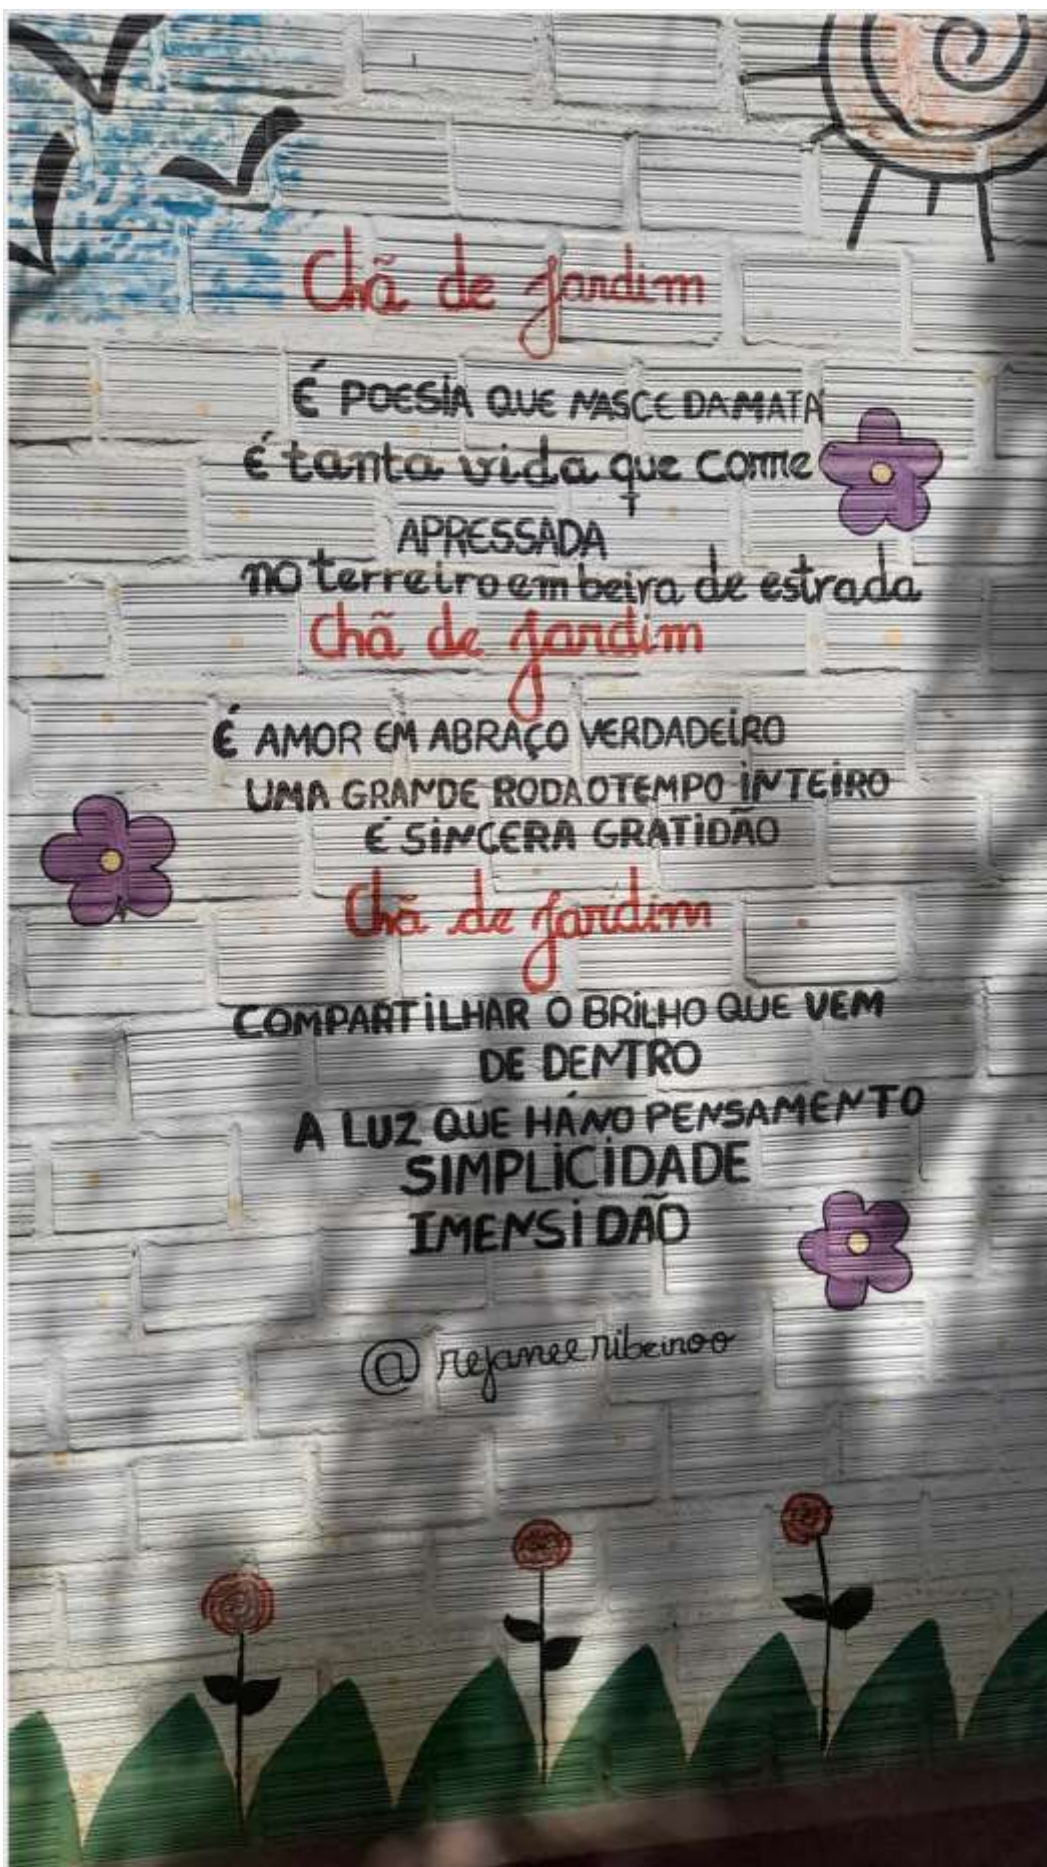 Chã de Jardim
É POESIA QUE NASCE DA MATA
É tanta vida que corre
APRESSADA
no terreiro em beira de estrada
Chã de Jardim
É AMOR EM ABRAÇO VERDADEIRO
UMA GRANDE RODA O TEMPO INTEIRO
É SINCERA GRATIDÃO
Chã de Jardim
COMPARTILHAR O BRILHO QUE VEM
DE DENTRO
A LUZ QUE HÁ NO PENSAMENTO
SIMPLICIDADE
IMENSIDÃO
@rejaneeribeiroo